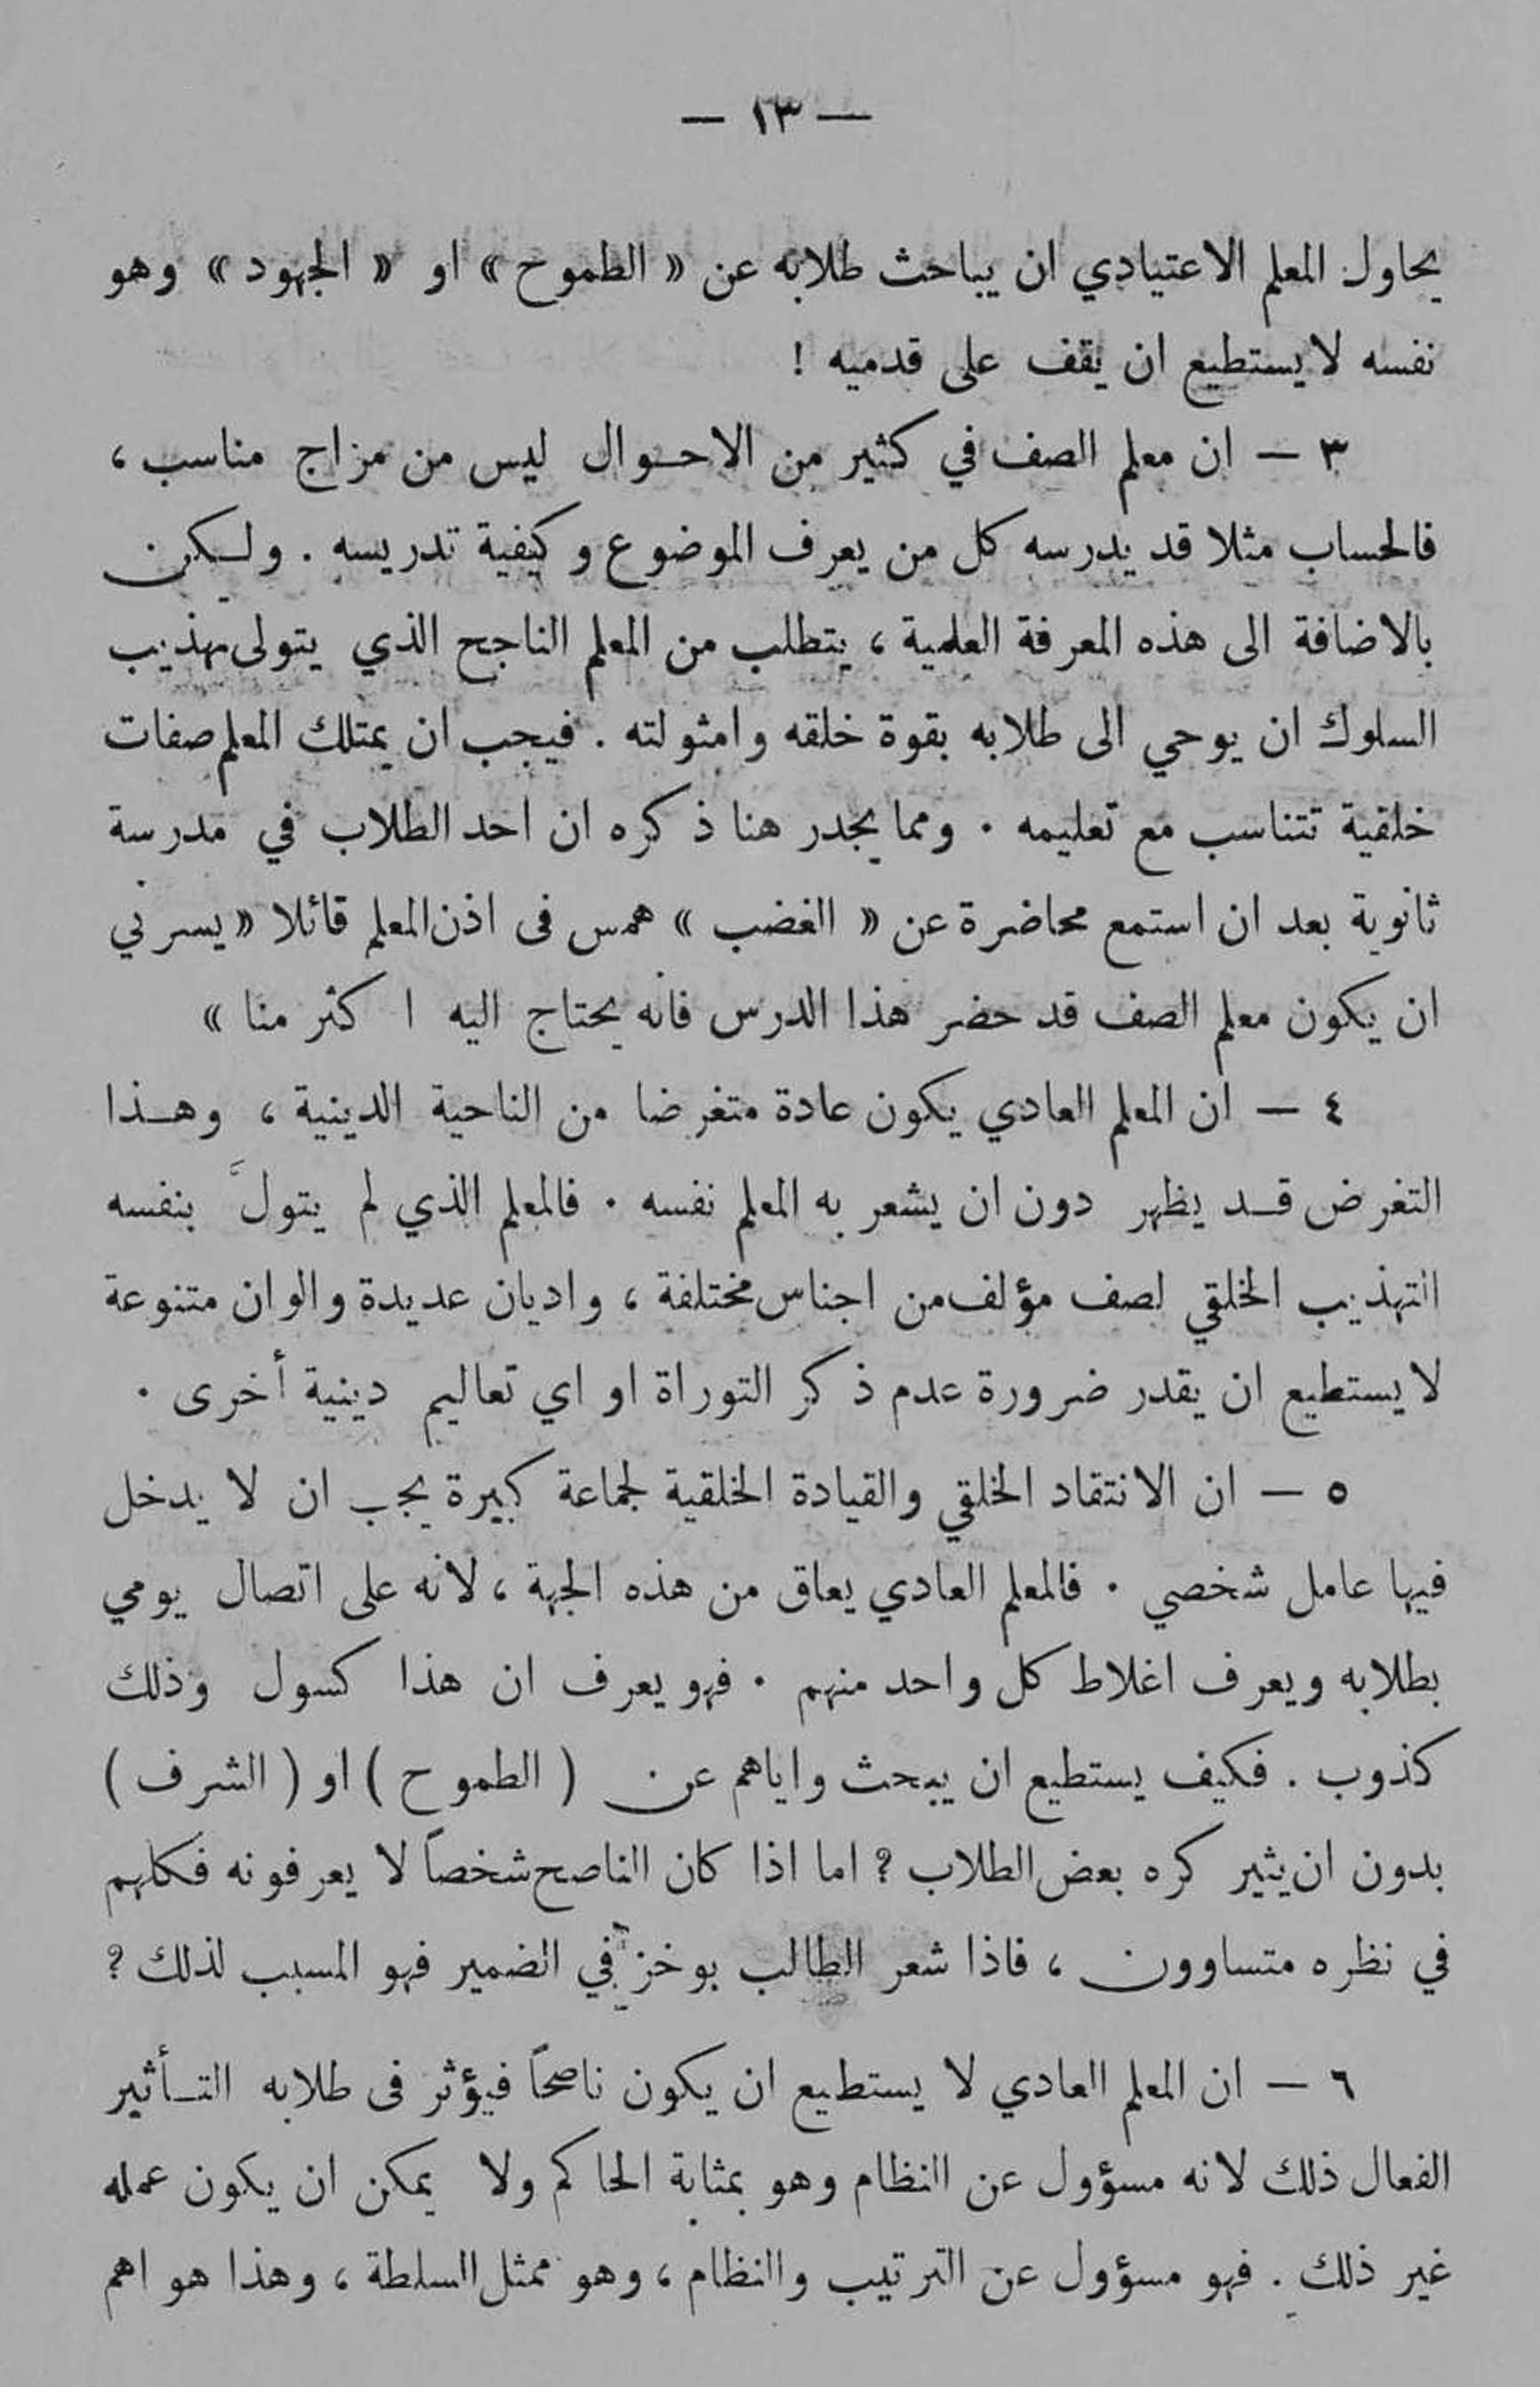 — ١٣ —
يحاول المعلم الاعتيادي ان يباحث طلابه عن « الطموح » او « الجهود » وهو
نفسه لا يستطيع ان يقف على قدميه !
٣ — ان معلم الصف في كثير من الاحوال ليس من مزاج مناسب ،
فالحساب مثلا قد يدرسه كل من يعرف الموضوع وكيفية تدريسه . ولكن
بالاضافة الى هذه المعرفة العلمية ، يتطلب من المعلم الناجح الذي يتولى تهذيب
السلوك ان يوحي الى طلابه بقوة خلقه وامثولته . فيجب ان يمتلك المعلم صفات
خلقية تتناسب مع تعليمه . ومما يجدر هنا ذكره ان احد الطلاب في مدرسة
ثانوية بعد ان استمع محاضرة عن « الغضب » همس فى اذن المعلم قائلا « يسرني
ان يكون معلم الصف قد حضر هذا الدرس فانه يحتاج اليه اكثر منا »
٤ — ان المعلم العادي يكون عادة متغرضا من الناحية الدينية ، وهذا
التغرض قد يظهر دون ان يشعر به المعلم نفسه . فالمعلم الذي لم يتولَّ بنفسه
التهذيب الخلقي لصف مؤلف من اجناس مختلفة ، واديان عديدة والوان متنوعة
لا يستطيع ان يقدر ضرورة عدم ذكر التوراة او اي تعاليم دينية أخرى .
٥ — ان الانتقاد الخلقي والقيادة الخلقية لجماعة كبيرة يجب ان لا يدخل
فيها عامل شخصي . فالمعلم العادي يعاق من هذه الجهة ، لانه على اتصال يومي
بطلابه ويعرف اغلاط كل واحد منهم . فهو يعرف ان هذا كسول وذلك
كذوب . فكيف يستطيع ان يبحث واياهم عن ( الطموح ) او ( الشرف )
بدون ان يثير كره بعض الطلاب ? اما اذا كان الناصح شخصاً لا يعرفونه فكلهم
في نظره متساوون ، فاذا شعر الطالب بوخز في الضمير فهو المسبب لذلك ?
٦ — ان المعلم العادي لا يستطيع ان يكون ناصحاً فيؤثر فى طلابه التأثير
الفعال ذلك لانه مسؤول عن النظام وهو بمثابة الحاكم ولا يمكن ان يكون عمله
غير ذلك . فهو مسؤول عن الترتيب والنظام ، وهو ممثل السلطة ، وهذا هو اهم